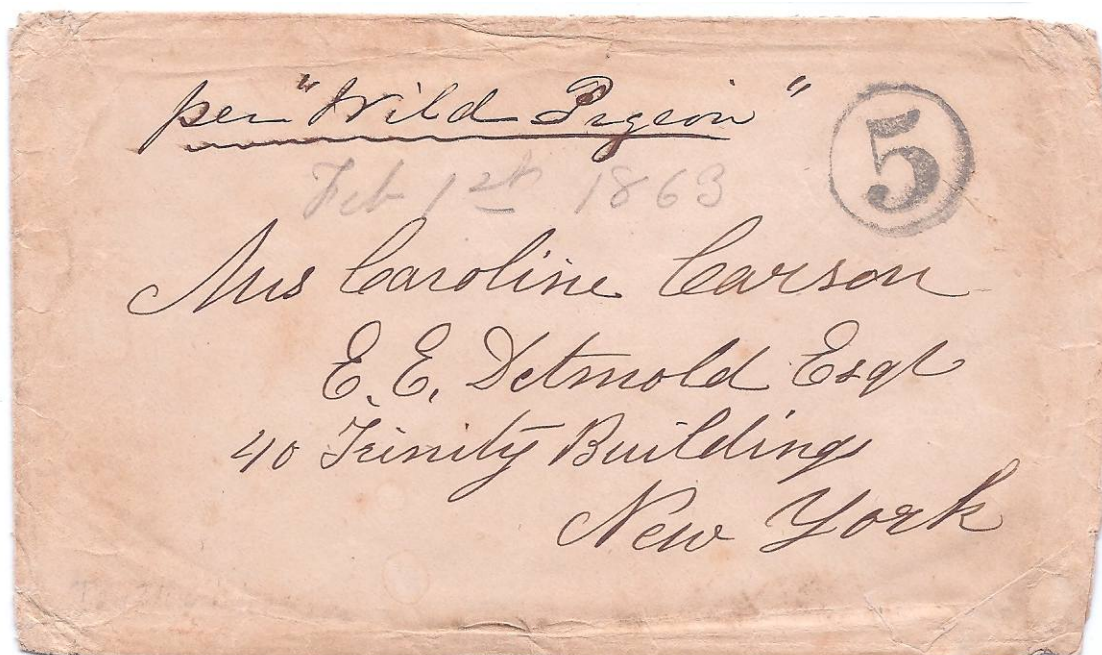 per "Wild Pigeon"
5
Feb 1st 1863
Mrs Caroline Carson
E. E. Detmold Esqr
40 Trinity Buildings
New York